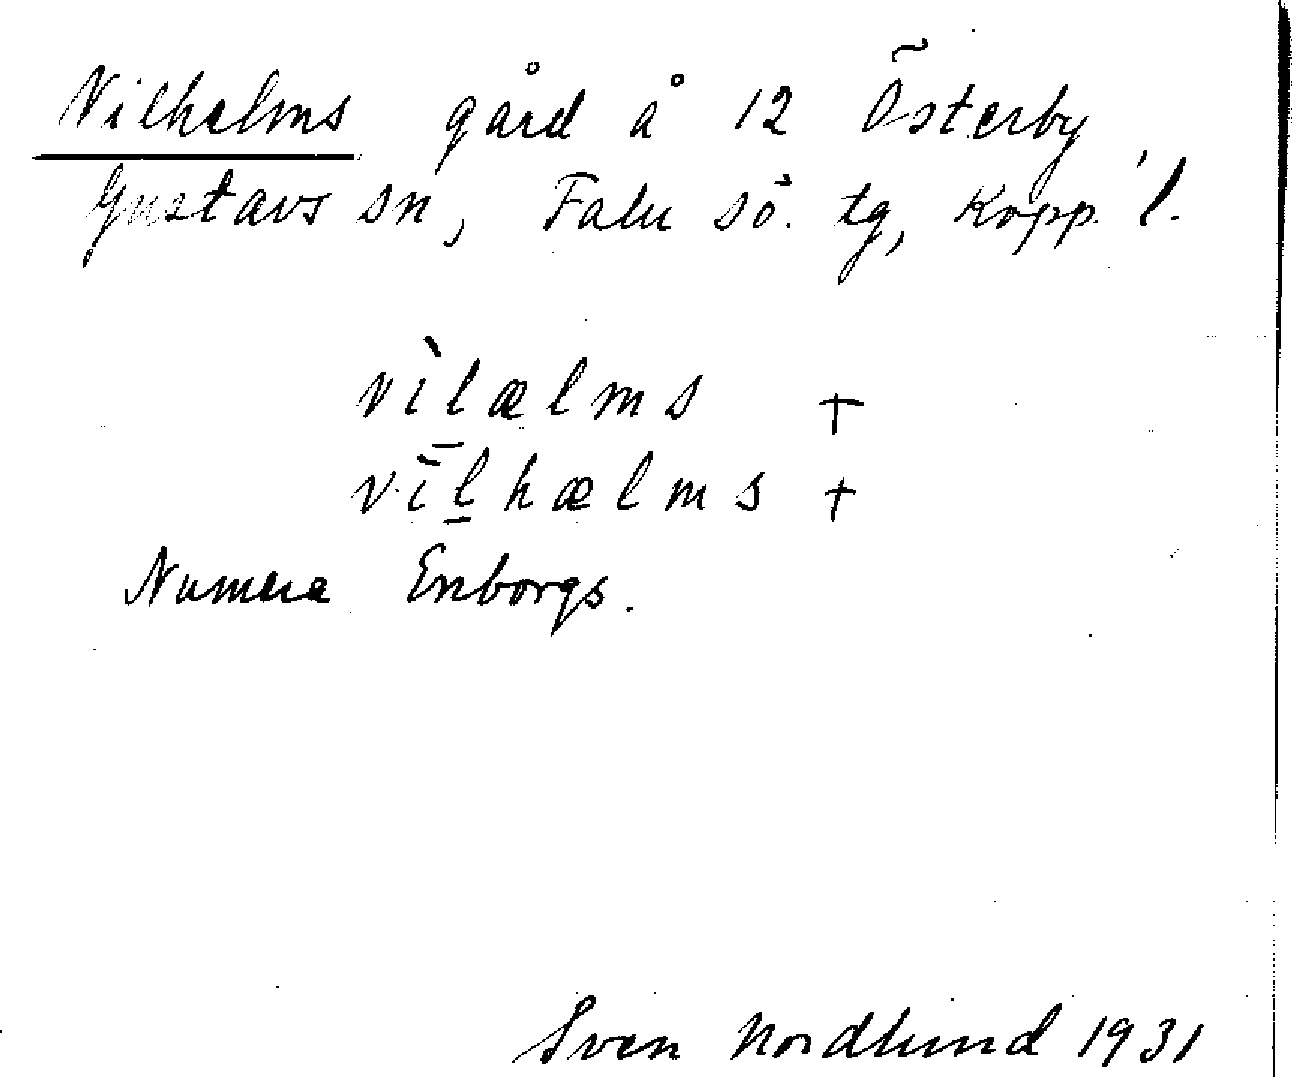 Vilhelms gård å 12 Österby
Gustavs sn, Falu sö. tg, Kopp. l.
vìlælms +
vìl̲hælms +
Numera Enborgs.
Sven Nordlund 1931